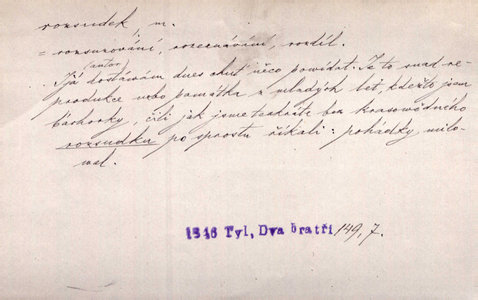 rozsudek m.
= rozsuzování, rozeznávání, rozdíl.
(autor)
I já dostávám dnes chuť něco powídat. Je to snad re-
produkce nebo památka z mladých let, kdežto jsem
báchorky, čili jak jsme tenkráte bez krasowědného
rozsudku po sprostu říkali: pohádky, milo-
wal.
1846 Tyl, Dva bratři 149, 7.